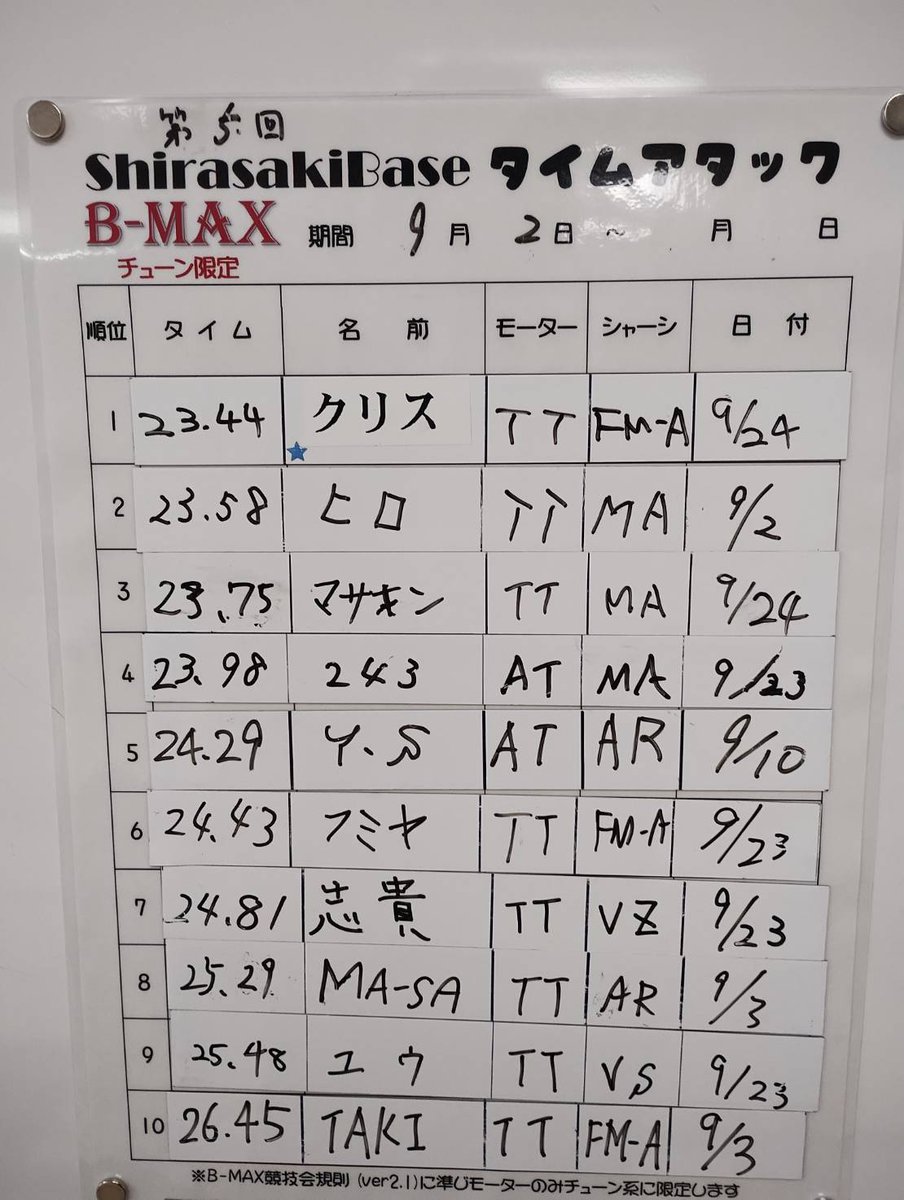 第5回
ShirasakiBase タイムアタック
B-MAX 期間 9月 2日 ~ 月 日
チューン限定
順位 タイム 名前 モーター シャーシ 日付
1 23.44 クリス TT FM-A 9/24
2 23.58 ヒロ TT MA 9/2
3 23.75 マサキン TT MA 9/24
4 23.98 243 AT MA 9/23
5 24.29 Y.S AT AR 9/10
6 24.43 フミヤ TT FM-A 9/23
7 24.81 志貴 TT VZ 9/23
8 25.29 MA-SA TT AR 9/3
9 25.48 ユウ TT VS 9/23
10 26.45 TAKI TT FM-A 9/3
※B-MAX競技会規則 (ver2.1)に準じモーターのみチューン系に限定します